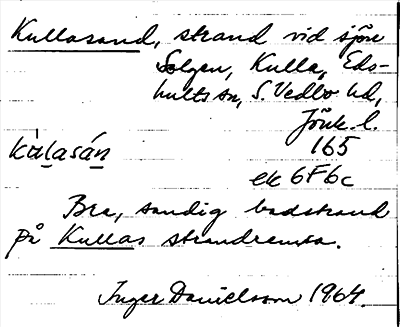 Kullasand, strand vid sjön
Solgen, Kulla, Eds-
hults sn, S. Vedbo hd,
Jönk. l.
165
kùlasán
ek 6F6c
Bra, sandig badstrand
på Kullas strandremsa.
Inger Danielsson 1964.